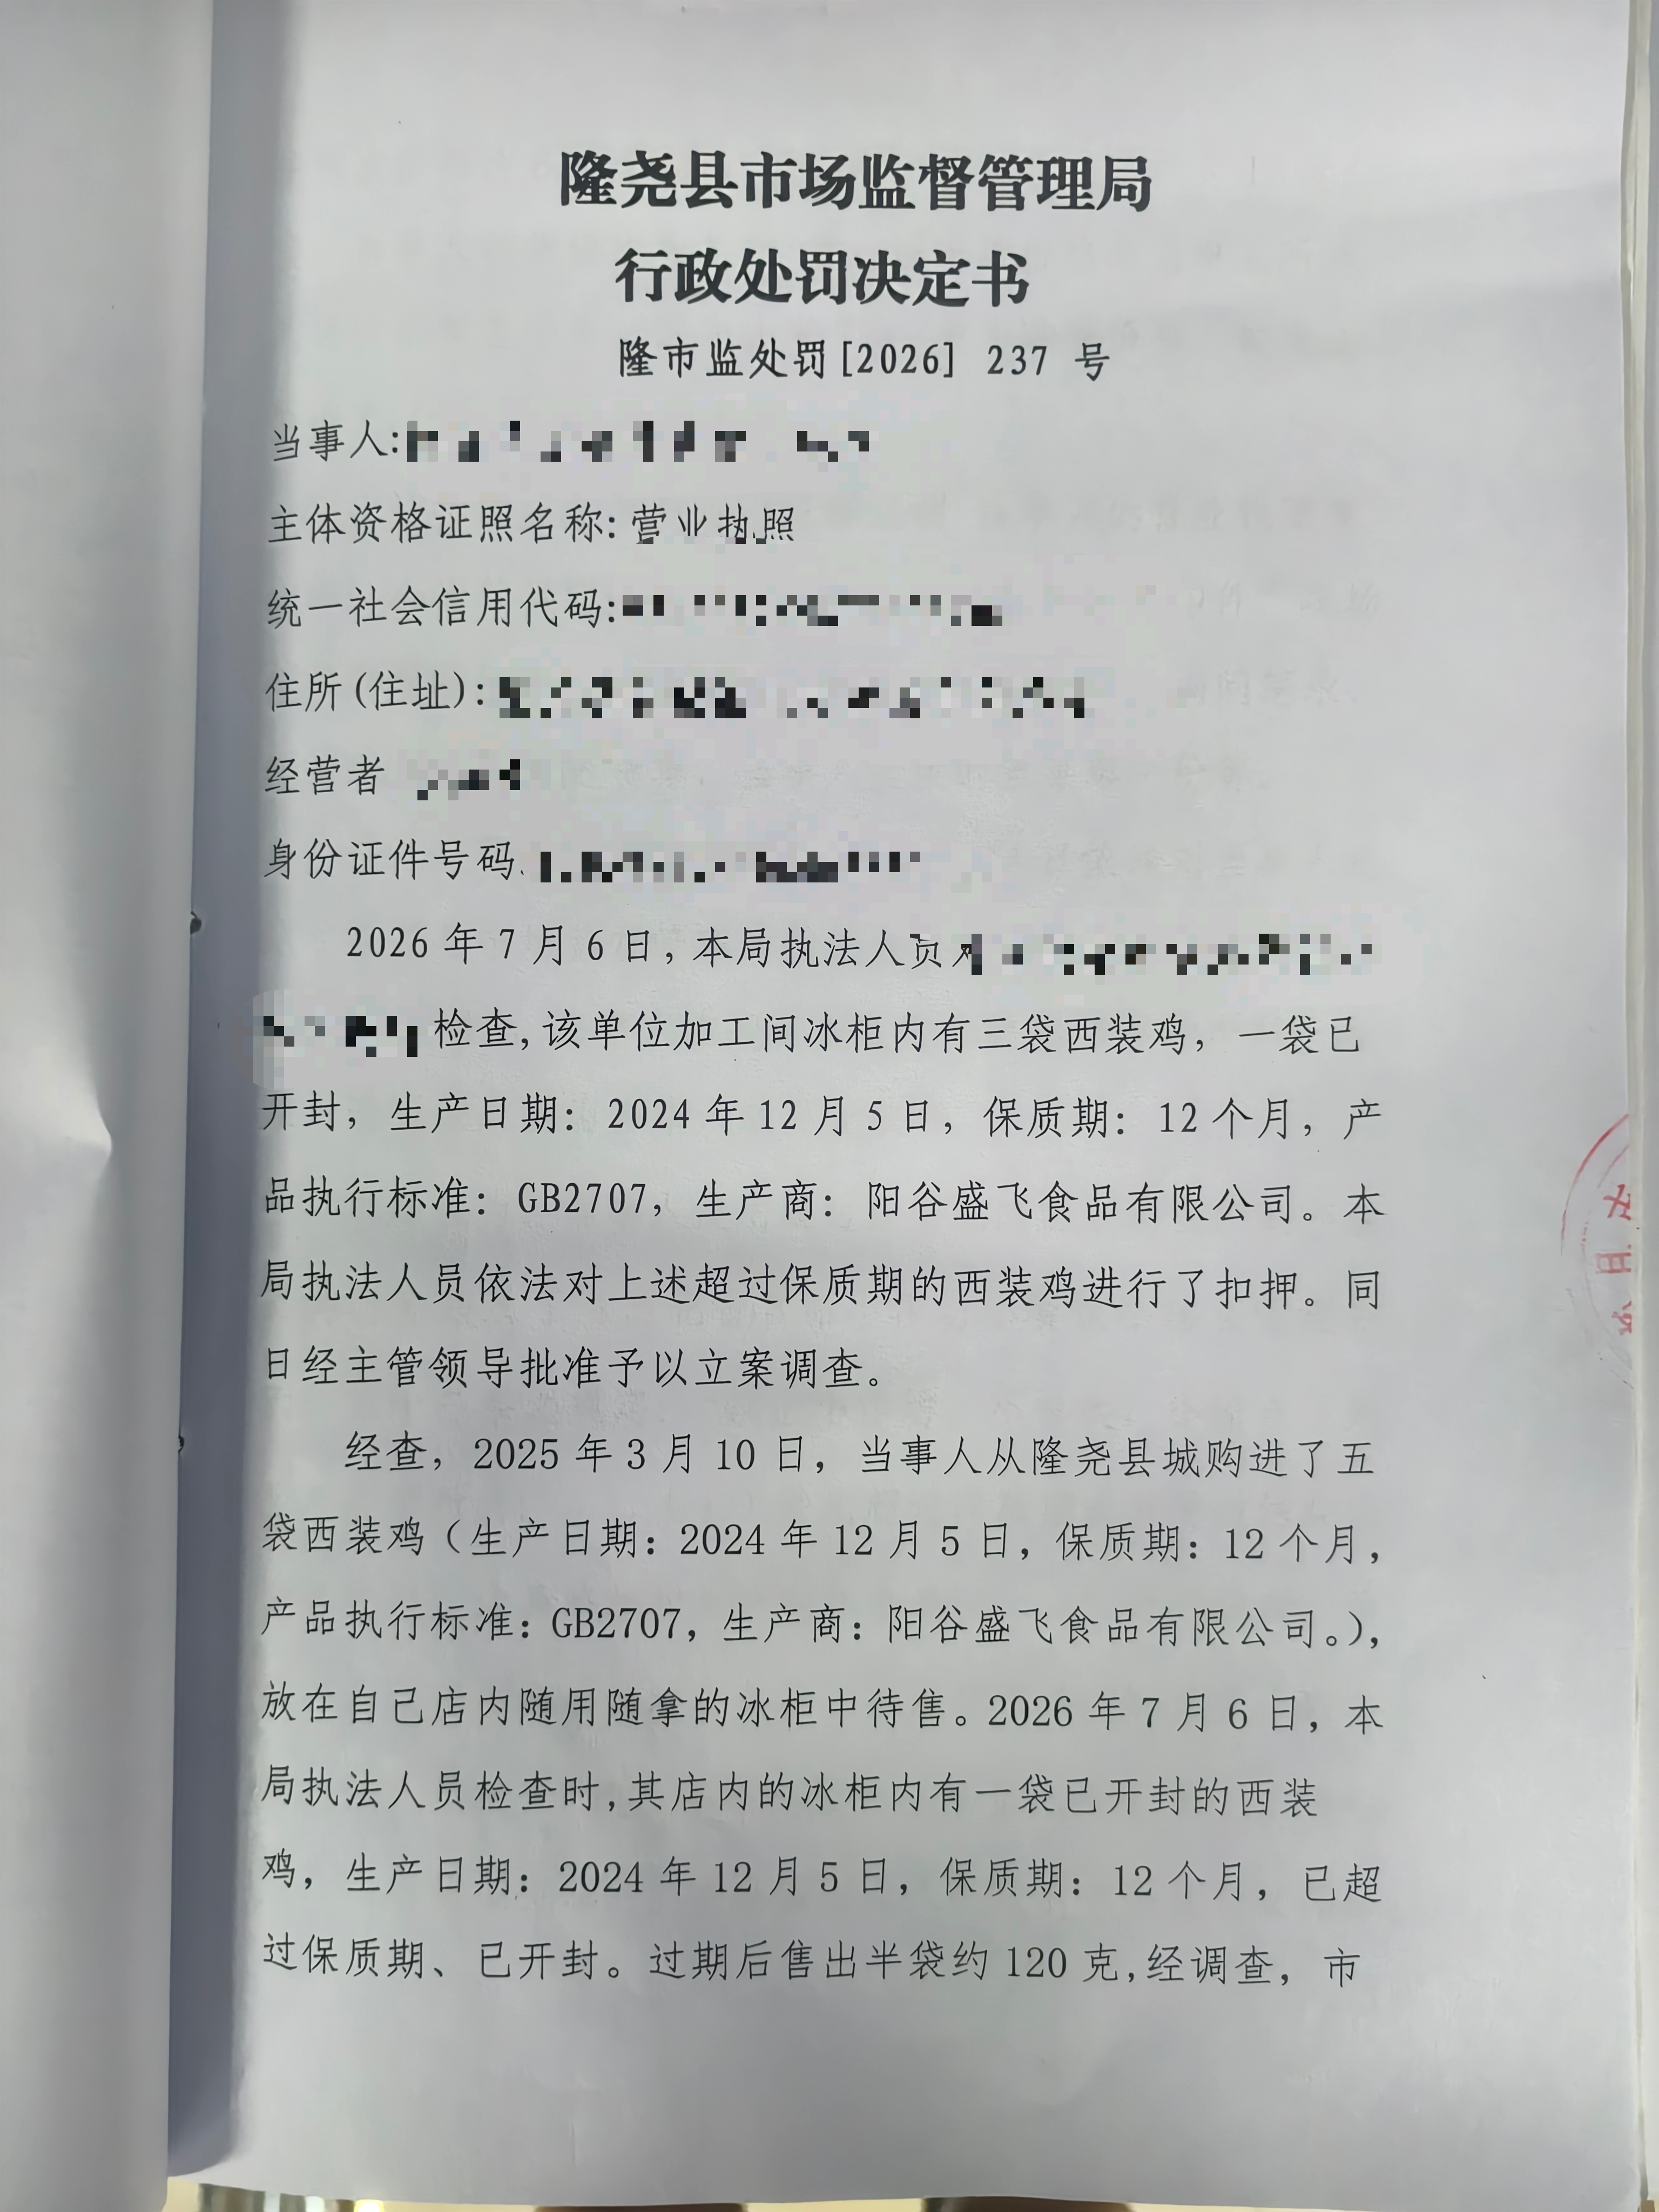 隆尧县市场监督管理局
行政处罚决定书
隆市监处罚[2026] 237 号
当事人:
主体资格证照名称: 营业执照
统一社会信用代码:
住所(住址):
经营者
身份证件号码
2026 年 7 月 6 日, 本局执法人员
检查, 该单位加工间冰柜内有三袋西装鸡, 一袋已
开封, 生产日期: 2024 年 12 月 5 日, 保质期: 12 个月, 产
品执行标准: GB2707, 生产商: 阳谷盛飞食品有限公司。本
局执法人员依法对上述超过保质期的西装鸡进行了扣押。同
日经主管领导批准予以立案调查。
经查, 2025 年 3 月 10 日, 当事人从隆尧县城购进了五
袋西装鸡（生产日期: 2024 年 12 月 5 日, 保质期: 12 个月,
产品执行标准: GB2707, 生产商: 阳谷盛飞食品有限公司。),
放在自己店内随用随拿的冰柜中待售。2026 年 7 月 6 日, 本
局执法人员检查时,其店内的冰柜内有一袋已开封的西装
鸡, 生产日期: 2024 年 12 月 5 日, 保质期: 12 个月, 已超
过保质期、已开封。过期后售出半袋约 120 克,经调查, 市